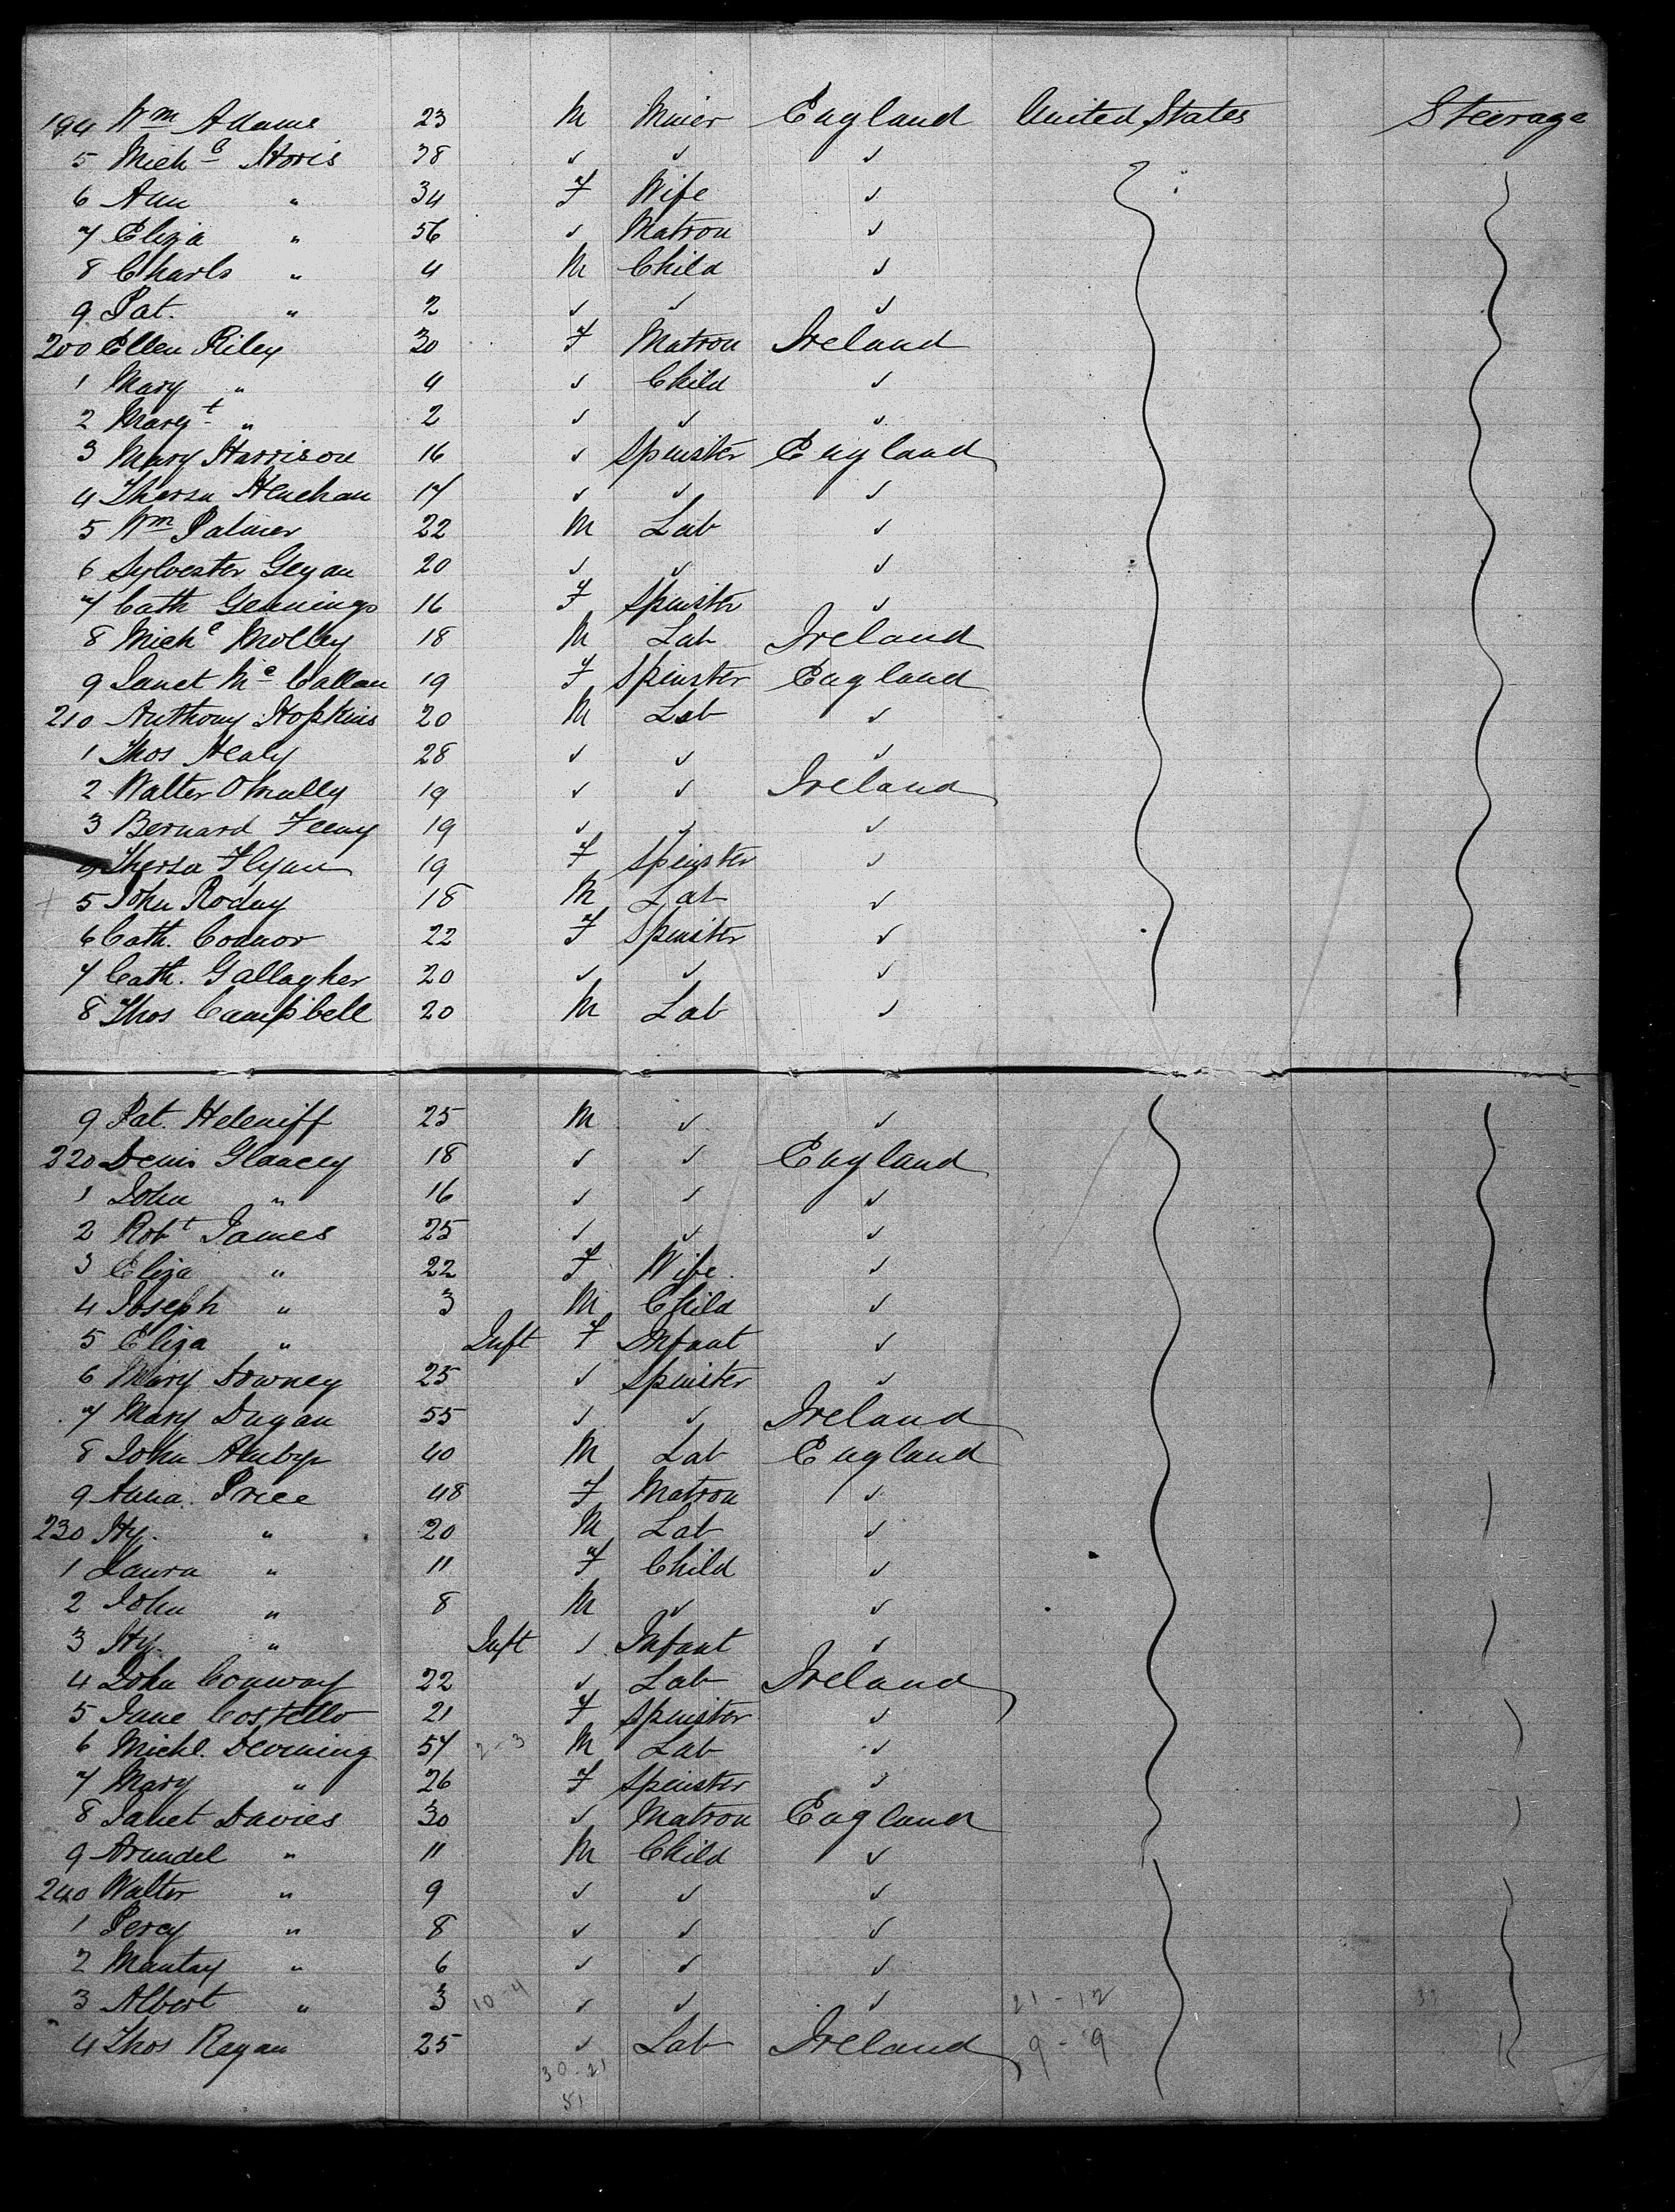 194 Wm Adams 23 M Miner England United States Steerage
5 Michl Horis 38 ✓ ✓ ✓
6 Ann " 34 F Wife ✓
7 Eliza " 56 ✓ Matron ✓
8 Charls " 4 M Child ✓
9 Pat. " 2 ✓ ✓ ✓
200 Ellen Riley 30 F Matron Ireland
1 Mary " 4 ✓ Child ✓
2 Margt " 2 ✓ ✓ ✓
3 Mary Harrison 16 ✓ Spinster England
4 Thersa Henehan 17 ✓ ✓ ✓
5 Wm Palmer 22 M Lab ✓
6 Sylvester Geyan 20 ✓ ✓ ✓
7 Cath Gennings 16 F Spinster ✓
8 Michl Molley 18 M Lab Ireland
9 Janet Mc Callan 19 F Spinster England
210 Anthony Hopkins 20 M Lab ✓
1 Thos Healy 28 ✓ ✓ ✓
2 Walter OMally 19 ✓ ✓ Ireland
3 Bernard Feeny 19 ✓ ✓ ✓
4 Thersa Flynn 19 F Spinster ✓
5 John Roday 18 M Lab ✓
6 Cath. Connor 22 F Spinster ✓
7 Cath. Gallagher 20 ✓ ✓ ✓
8 Thos Campbell 20 M Lab ✓
9 Pat. Heleniff 25 M ✓ ✓
220 Denis Glancey 18 ✓ ✓ England
1 John " 16 ✓ ✓ ✓
2 Robt James 25 ✓ ✓ ✓
3 Eliza " 22 F Wife ✓
4 Joseph " 3 M Child ✓
5 Eliza " Inft F Infant ✓
6 Mary Downey 25 ✓ Spinster ✓
7 Mary Dugan 55 ✓ ✓ Ireland
8 John 40 M Lab England
9 Anna Price 48 F Matron ✓
230 Hy. " 20 M Lab ✓
1 Laura " 11 F Child ✓
2 John " 8 M ✓ ✓
3 Hy. " Inft ✓ Infant ✓
4 John Conway 22 ✓ Lab Ireland
5 Jane Costello 21 F Spinster ✓
6 Michl. Deoming 57 2-3 M Lab ✓
7 Mary " 26 F Spinster ✓
8 Janet Davies 30 ✓ Matron England
9 Arundel " 11 M Child ✓
240 Walter " 9 ✓ ✓ ✓
1 Percy " 8 ✓ ✓ ✓
2 Mantay " 6 ✓ ✓ ✓
3 Albert " 3 10-4 ✓ ✓ ✓ 21-12
4 Thos Ragan 25 ✓ Lab Ireland 9-9
30-21
51